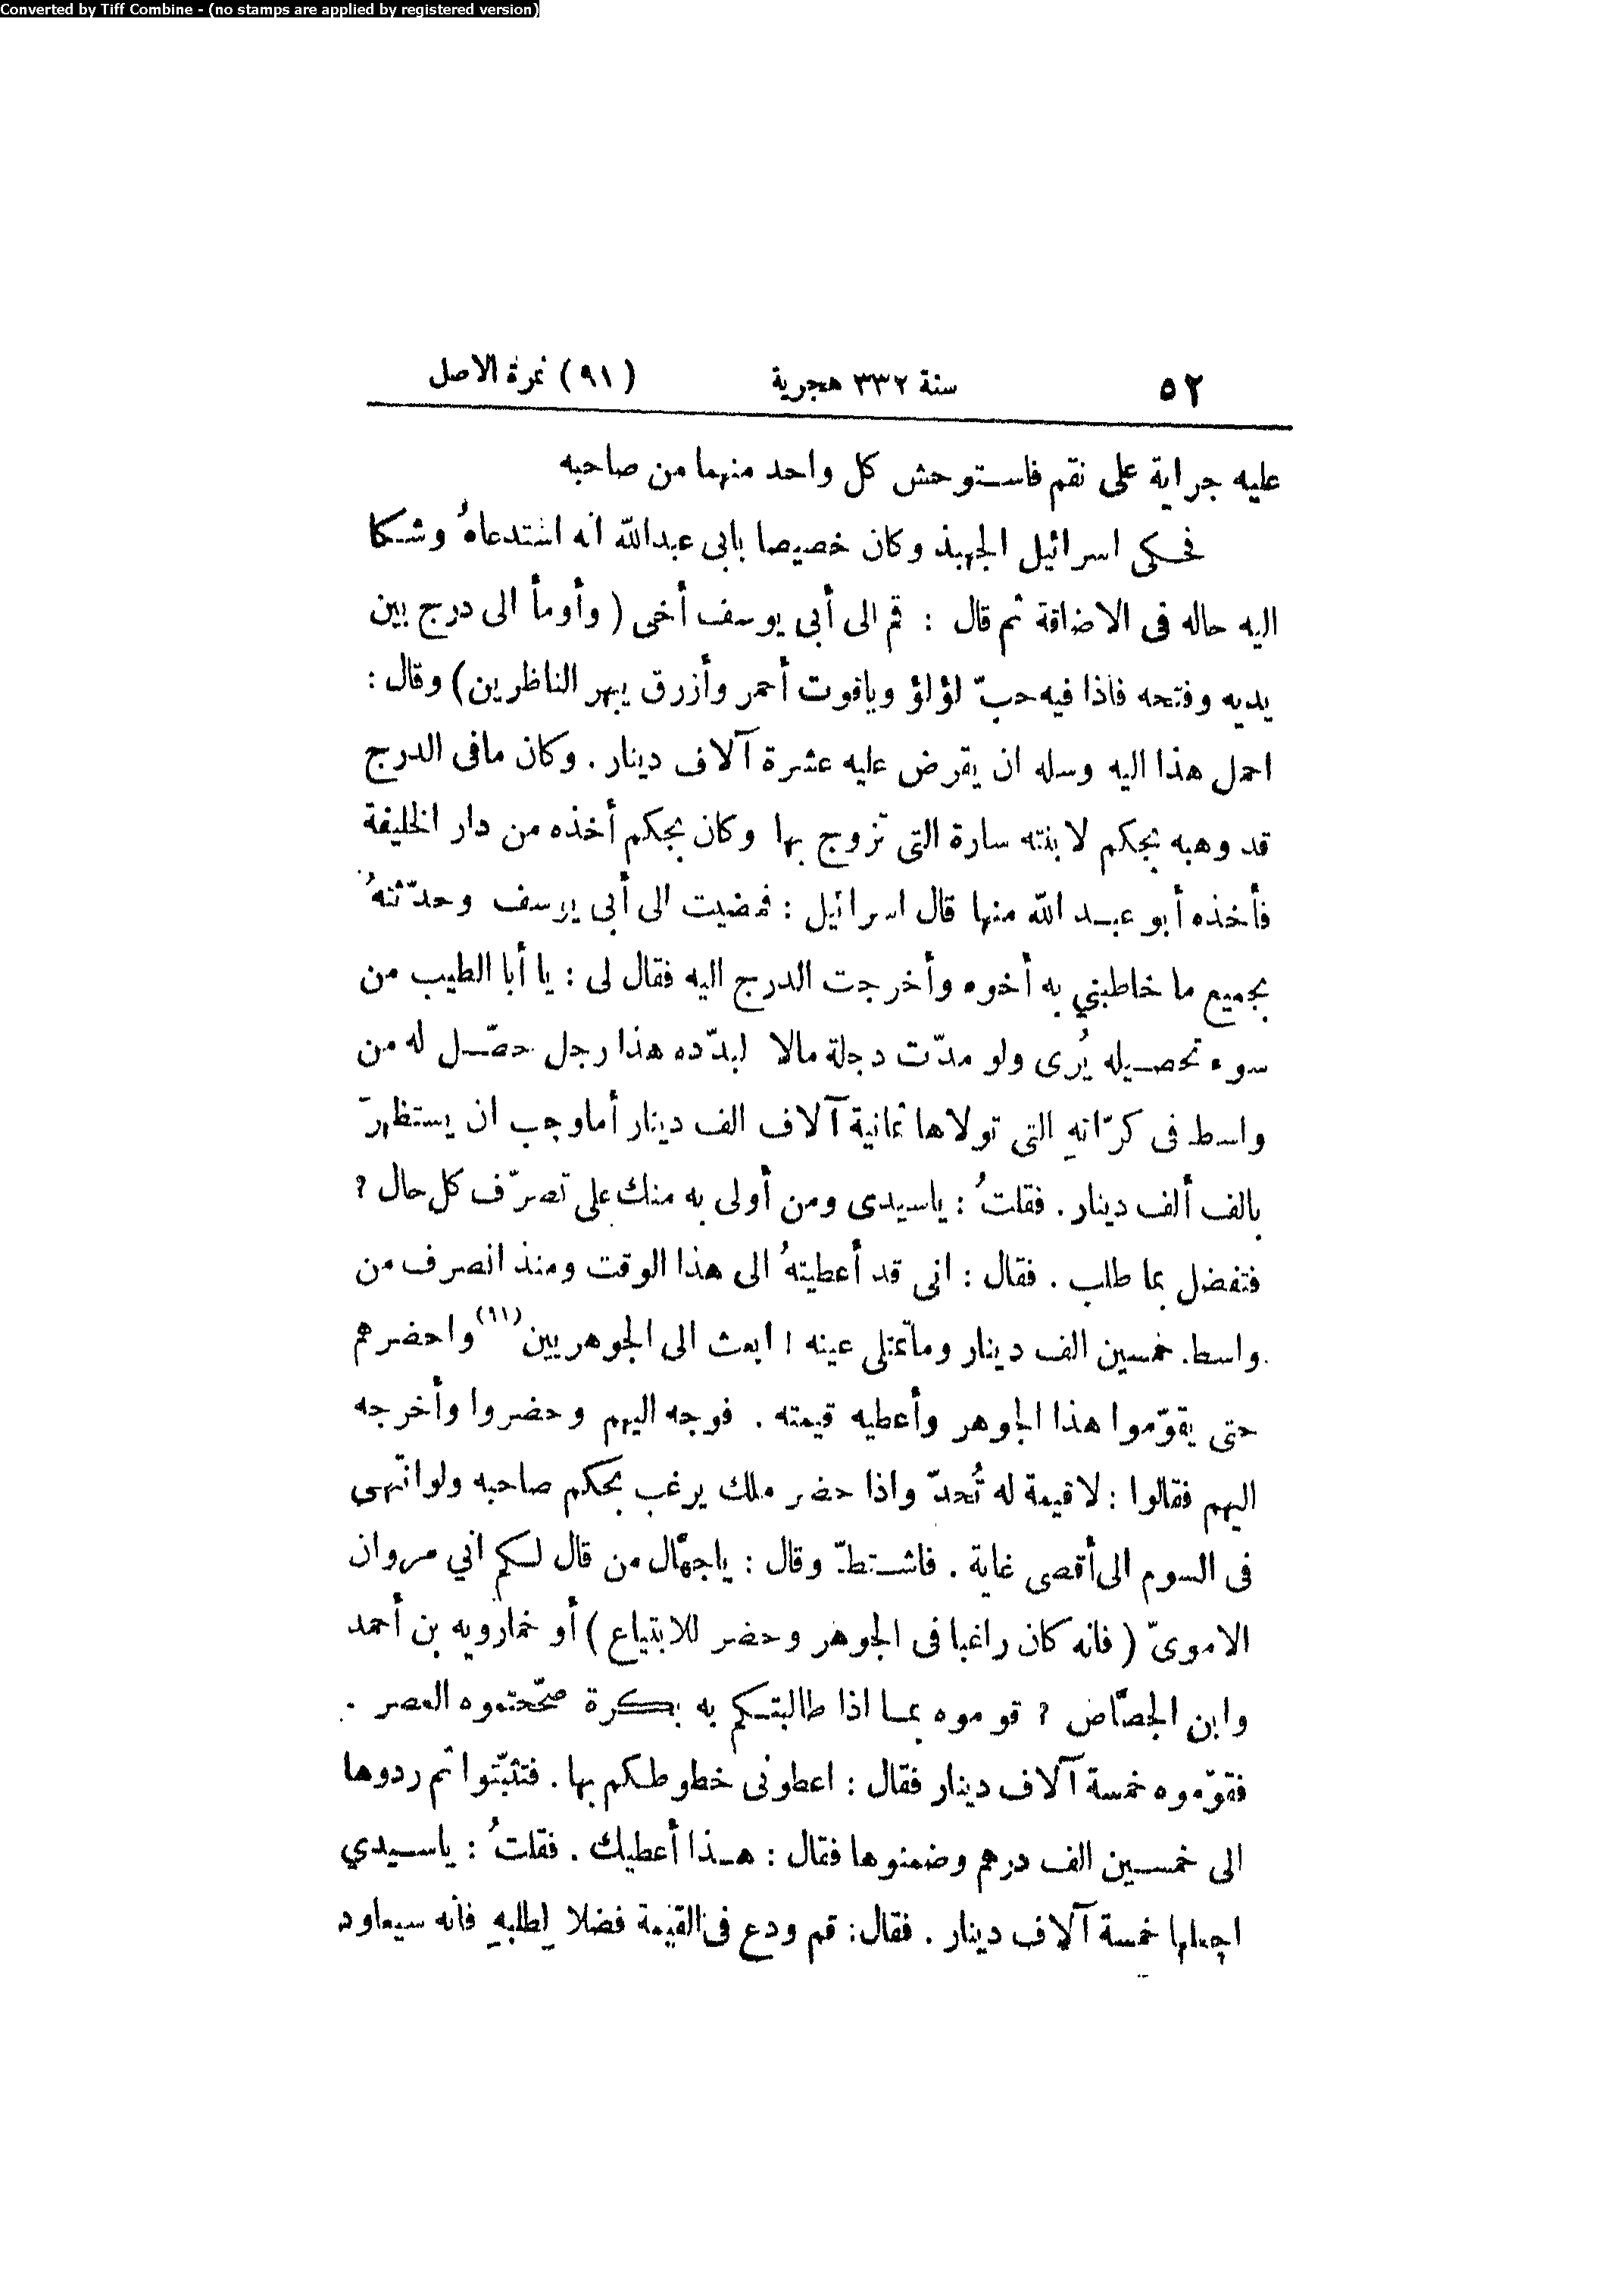 Converted by Tiff Combine - (no stamps are applied by registered version)
٥٢ سنة ٣٣٢ هجرية (٩١) نمرة الاصل
عليه جراية على نقم فاستوحش كل واحد منهما من صاحبه
فحكى اسرائيل الجهبذ وكان خصيصا بابى عبدالله انه استدعاهُ وشكا
اليه حاله فى الاضاقة ثم قال : قم الى أبى يوسف أخى (وأومأ الى درج بين
يديه وفتحه فاذا فيه حبّ لؤلؤ وياقوت أحمر وأزرق يبهر الناظرين) وقال :
احمل هذا اليه وسله ان يقرض عليه عشرة آلاف دينار . وكان مافى الدرج
قد وهبه بجكم لابنته سارة التى تزوج بها وكان بجكم أخذه من دار الخليفة
فأخذه أبو عبد الله منها قال اسرائيل : فمضيت الى أبى يوسف وحدّثتهُ
بجميع ما خاطبني به أخوه وأخرجت الدرج اليه فقال لى : يا أبا الطيب من
سوء تحصيله يُرى ولو مدّت دجلة مالا لبدّده هذا رجل حصّل له من
واسط فى كرّاتهِ التى تولاها ثمانية آلاف الف دينار أماوجب ان يستظهرَ
بالف ألف دينار . فقلتُ : ياسيدى ومن أولى به منك على تصرّف كل حال ?
فتفضل بما طلب . فقال : انى قد أعطيتهُ الى هذا الوقت ومنذ انصرف من
واسط خمسين الف دينار وماتمتلى عينه ! ابعث الى الجوهريين (٩١) واحضرهم
حتى يقوّموا هذا الجوهر وأعطيه قيمته . فوجه اليهم وحضروا وأخرجه
اليهم فقالوا : لاقيمة له تُحدّ واذا حضر ملك يرغب بحكم صاحبه ولو انتهى
فى السوم الى أقصى غاية . فاشتطّ وقال : ياجهّال من قال لكم اني مروان
الاموىّ (فانه كان راغبا فى الجوهر وحضر للابتياع) أو خمارويه بن أحمد
وابن الجصّاص ? قوموه بما اذا طالبتكم به بكرة صحّحتموه العصر .
فقوّموه خمسة آلاف دينار فقال : اعطونى خطوطكم بها . فتثبّتوا ثم ردوها
الى خمسين الف درهم وضمنوها فقال : هذا أعطيك . فقلتُ : ياسيدي
اجعلها خمسة آلاف دينار . فقال : قم ودع فى القيمة فضلا لِطلبهِ فانه سيعاود